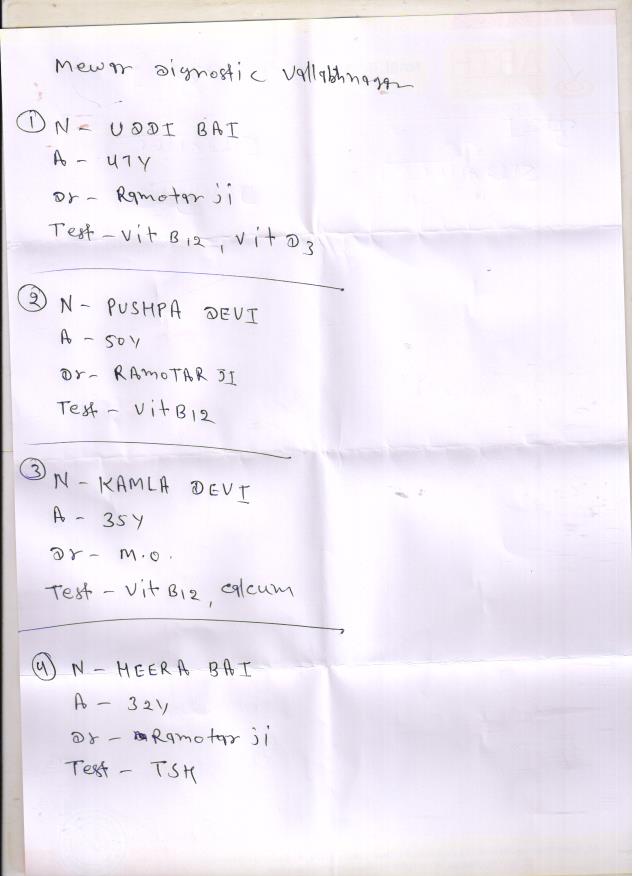 Mewar Dignostic Vallabhnagar
① N - UDDI BAI
A - 47Y
Dr - Ramotar ji
Test - Vit B12, Vit D3
② N - PUSHPA DEVI
A - 50Y
Dr - RAMOTAR JI
Test - Vit B12
③ N - KAMLA DEVI
A - 35Y
Dr - M.O.
Test - Vit B12, calcum
④ N - HEERA BAI
A - 32Y
Dr - Ramotar ji
Test - TSH